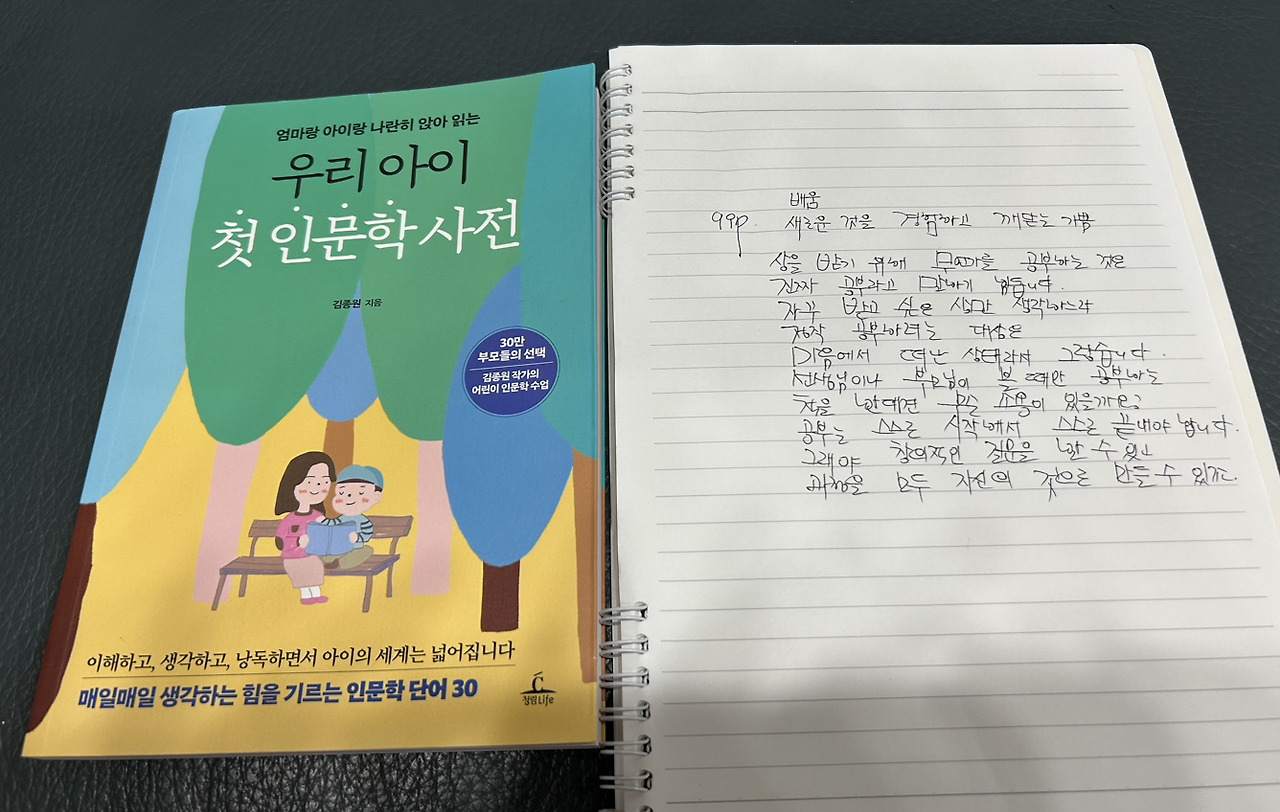 엄마랑 아이랑 나란히 앉아 읽는
우리 아이
첫 인문학 사전
김종원 지음
30만
부모들의 선택
김종원 작가의
어린이 인문학 수업
이해하고, 생각하고, 낭독하면서 아이의 세계는 넓어집니다
매일매일 생각하는 힘을 기르는 인문학 단어 30
청림Life
배움
99p. 새로운 것을 경험하고 깨닫는 기쁨
상을 받기 위해 무언가를 공부하는 것은
진짜 공부라고 말하기 힘듭니다.
자꾸 받고 싶은 상만 생각하느라
정작 공부하려는 대상은
마음에서 떠난 상태라서 그렇습니다.
선생님이나 부모님이 볼 때만 공부하는
척을 한대면 무슨 소용이 있을까요?
공부는 스스로 시작해서 스스로 끝내야 합니다.
그래야 창의적인 질문을 할 수 있고
과정을 모두 자신의 것으로 만들 수 있죠.